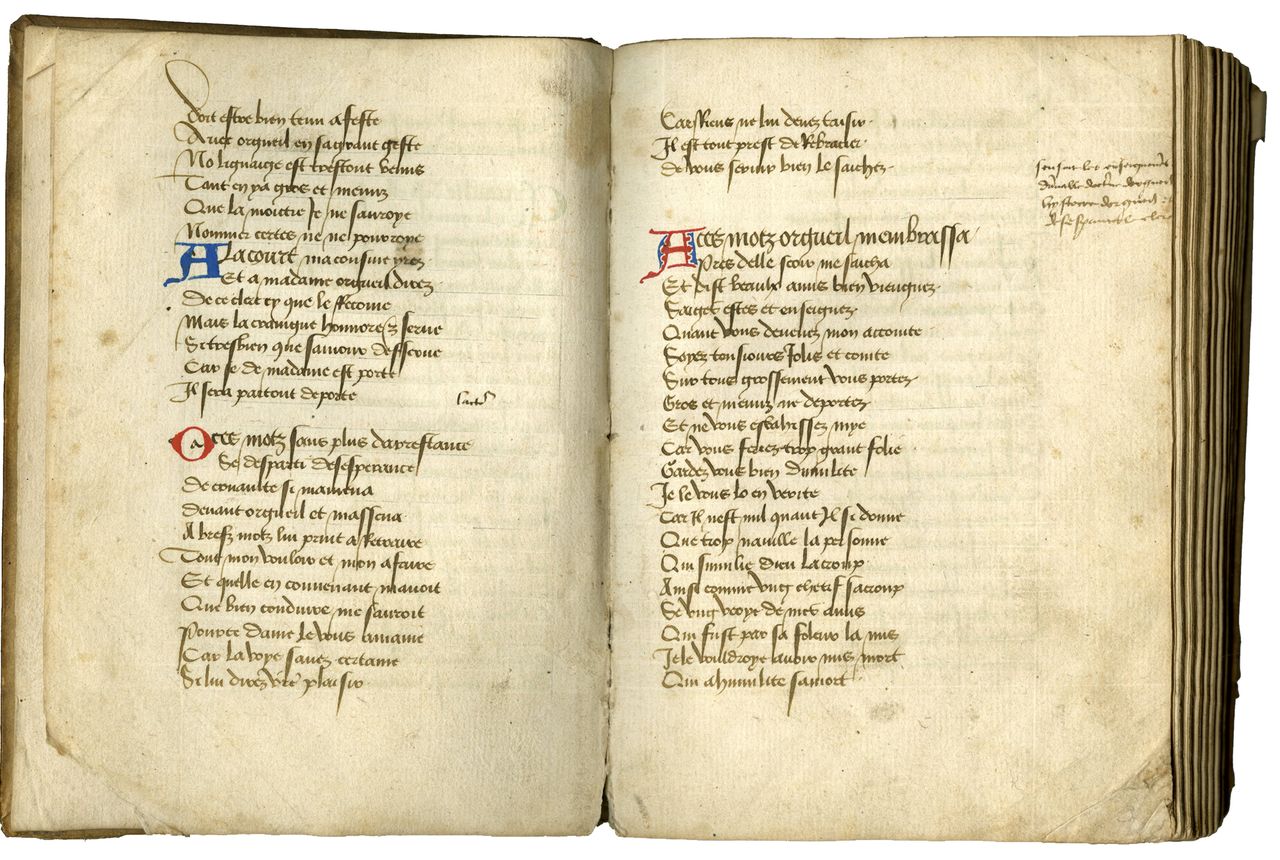 Doit estre bien tenu a feste
Avec orgueil en sa grant geste
No lignaige est trestout venus
Tant en y a gros et menuz
Que la moictie Je ne sauroye
Nommer certes ne ne pouroye
A la court ma consine yrez
Et a madame orgueil direz
De ce clerc cy que le
Mais la craingne honnore et serve
Si tresbien que samour desserve
Car se de madame est porte
Il sera partout deporte
lacteur
A ces motz sans plus darrestance
Se desparti desesperance
De couuaite si mamena
Devant orgueil et massena
A brefz motz lui print a Retraire
Tout mon vouloir et mon afaire
Et quelle en convenant mavoit
Que bien conduire me sauroit
Pource dame Je vous amaine
Car la voye savez certaine
Si lui direz vr̃e plaisir
Car Riens ne lui devez taisir
Il est tout prest de
De vous servir bien le saichez
sensuit les enseignemens
dorgueil
A ces motz orgueil membrassa
Pres delle seoir me saicha
Et dist beaulx amis bien viengnez
Saiges estes et enseignez
Quant vous devenez mon accointe
Soyez tousiours Jolis et cointe
Sur tous grossement vous portez
Gros et menuz ne deportez
Et ne vous esbahissez mye
Car vous feriez trop grant folie
Gardez vous bien dumilite
Je le vous lo en verite
Car Il nest nul quant Il si donne
Que trop naville la personne
Qui sumilie dieu lacroup
Ainsi comme ung chetif sacroup
Se ung voye de mes amis
Qui fust par sa foleur la mis
Je le vouldroye avoir mis mort
Qui a humilite samort